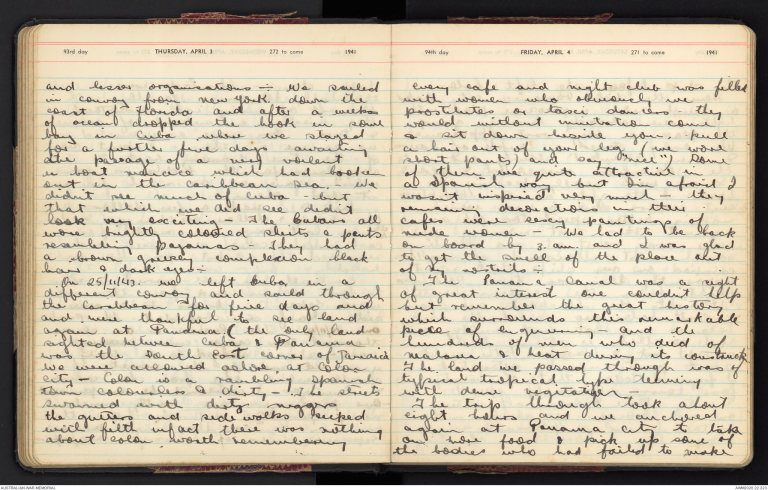 93rd day THURSDAY, APRIL 3 272 to come 1941
and lesser organisations ÷ We sailed
in convoy from New York down the
coast of Florida and after a weeks
of ocean dropped the hook in some
bay in Cuba where we stayed
for a further five days awaiting
the passage of a very violent
u boat menace which had broken
out in the Caribbean Sea. We
didn't see much of Cuba - but
that which we did see didn't
look very exciting - The Cubans all
wore brightly coloured shirts & pants
resembling pajamas - They had
a brown greasy complexion black
hair & dark eyes ÷
On 25/11/43. we left Cuba in a
different convoy and sailed through
the Caribbean for five days and
and were thankful to see land
again at Panama (the only land
sighted between Cuba & Panama
was the South East corner of Jamaica
we were allowed ashore at Colon
city - Colon is a rambling Spanish
town colourless & dirty - The streets
swarmed with dirty niggers
the gutters and side walks reeked
with filth infact there was nothing
about Colon worth remembering
94th day FRIDAY, APRIL 4 271 to come 1941
every cafe and night club was filled
with women who obviously were
prostitutes or taxi dancers - they
would without invitation come
& sit down beside you. pull
a hair out of your leg (we wore
short pants) and say "nice") Some
of them were quite attractive in
a Spanish way but I'm afraid I
wasn't inspired very much - they
remaining decorations in their
cafes were sexy paintings of
nude women - We had to be back
on board by 3. am. and I was glad
to get the smell of the place out
of my nostrils ÷
The Panama Canal was a sight
of great interest one couldn't help
but remember the great history
which surrounds this remarkable
piece of engineering - and the
hundreds of men who died of
malaria & heat during its construction
The land we passed through was of
typical tropical type teeming
with dense vegetation
The trip through took about
eight hours and we anchored
again at Panama city to take
on more food & pick up some of
the bodies who had failed to make
AUSTRALIAN WAR MEMORIAL